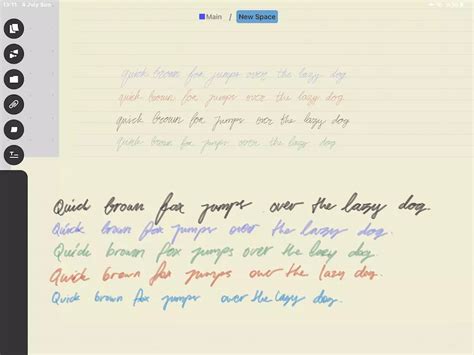 13:11 4 July Sun
Main / New Space
quick brown fox jumps over the lazy dog
quick brown fox jumps over the lazy dog.
quick brown fox jumps over the lazy dog
quick brown fox jumps over the lazy dog.
Quick brown fox jumps over the lazy dog.
Quick brown fox jumps over the lazy dog.
Quick brown fox jumps over the lazy dog.
Quick brown fox jumps over the lazy dog.
Quick brown fox jumps over the lazy dog.